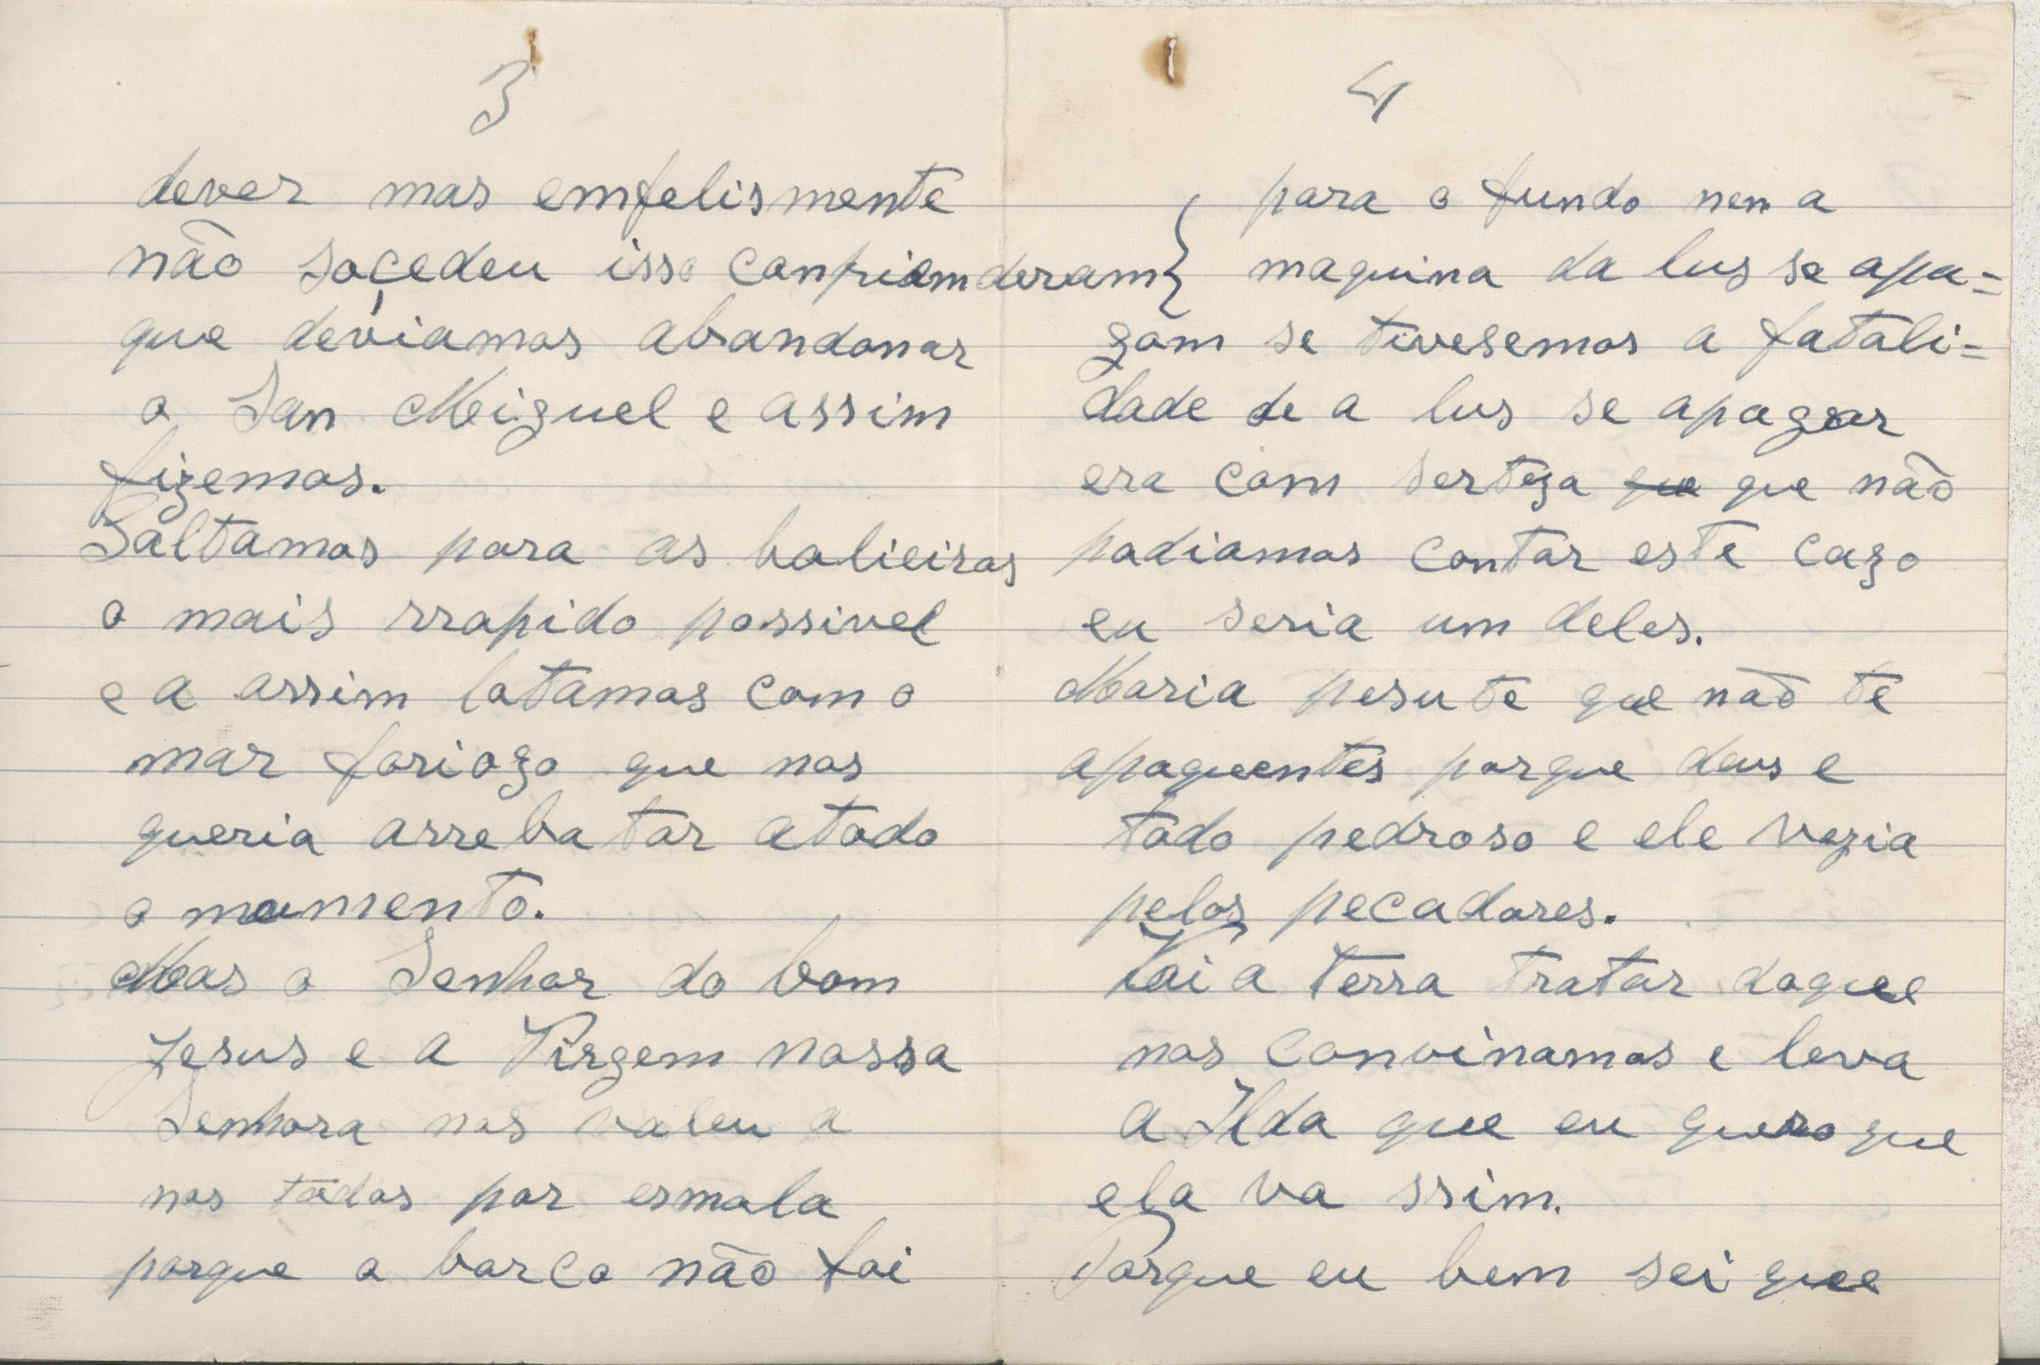 3
dever mas emfelismente
não soçedeu isso conpriemderam
que deviamos abandonar
o San Meiguel e assim
fizemos.
Saltamos para as balieiras
o mais rrapido possivel
e a assim lotamos com o
mar foriozo que nos
queria arrebatar a todo
o momento.
Mas o Senhor do bom
Jesus e a Virgem nossa
Senhora nos valeu a
nos todos por esmola
porque o barco não foi
4
para o fundo nem a
maquina da lus se apa=
gom se tivesemos a fatali=
dade de a lus se apagar
era com serteza que que não
podiamos contar este cazo
eu seria um deles.
Maria pesu te que não te
apoquentes porque deus e
todo pedroso e ele vezia
pelos pecadores.
Vai a terra tratar doque
nos convinamos e leva
a Ilda que eu quero que
ela va ssim.
Porque eu bem sei que